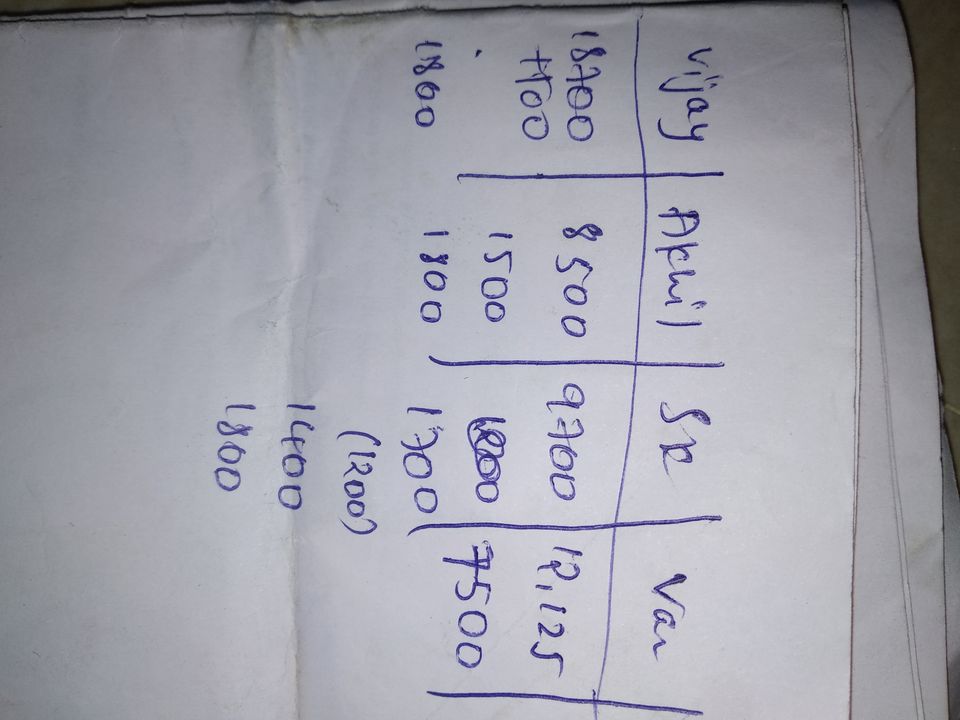 Vijay | Akhil | Sk | Van
18700 | 8500 | 9700 | 12,125
+1500 | 1500 | 7500
1800 | 1800 | 1700
(1200)
1400
1800